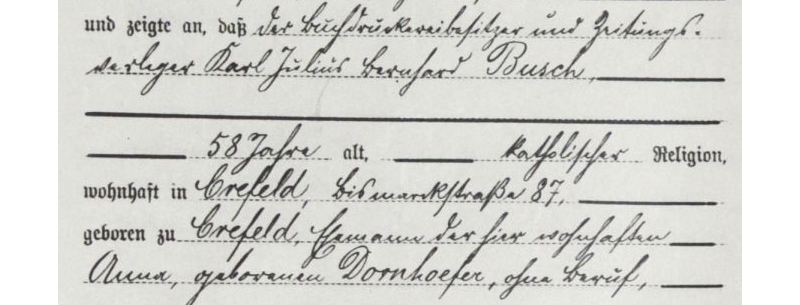 und zeigte an, daß der Buchdruckereibesitzer und Zeitungs-
verleger Karl Julius Bernhard Busch,
58 Jahre alt, katholischer Religion,
wohnhaft in Crefeld, Bismarckstraße 87,
geboren zu Crefeld, Ehemann der hier wohnhaften
Anna, geborenen Dornhoefer, ohne Beruf,